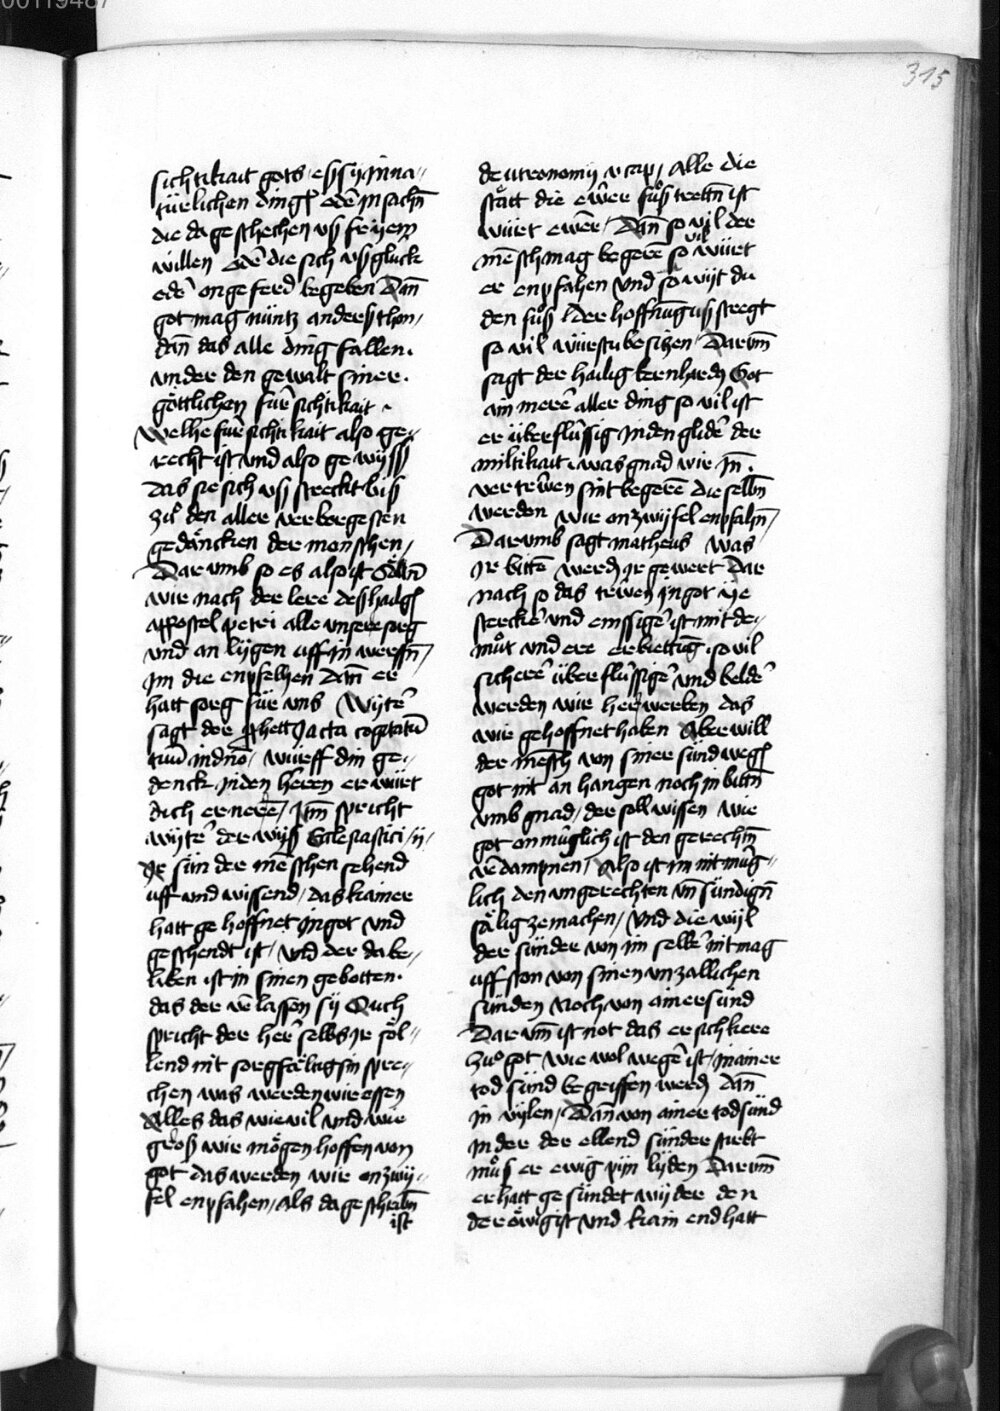 00119487
315
sichtikait gots / es sÿ jn na⸗
türlichen dingē oder in sachn̄
die da geschechen vß freÿem
willen oder die sich vß gluck
oder ongeferd begeben Dan̄
got mag nüntz anderß thon /
dan̄ das alle ding fallen.
vnder den gewalt siner.
göttlichen für sichtikait.
Welhe fürsichtikait also ge⸗
recht ist vnd also gewÿß
das sie sich vß streckt biß
zuͦ den aller verborgesten
gedäncken der menschen /
Darumb so es also ist Söllen̄
wir nach der lere deß hailgē
appostel petri alle vnsere sorg
vnd an lÿgen vff jn werffn̄ /
jm die enpfelhen Dan̄ er
hatt sorg für vns Wÿter̄
sagt der prophett Jacta cogitatū
tuū in dn̄o / Würff din ge⸗
denck jn den heren er würt
dich erneren̄ / Jtm̄ spricht
wÿter̄ der wÿß Ecclesiastici / ij /
Jr sün der mēschen sehend
vff vnd wissend / das kainer
hatt gehoffnet jn got vnd
geschendt ist / vnd der da be⸗
liben ist in sinen gebotten.
das der v̄lassen sÿ Ouch
spricht der her̄ selbs jr söl⸗
lend nit sorgfältig sin spre⸗
chen was werden wir essen
Alles das wie vil vnd wie
groß wir mögen hoffen von
got das werden wir on zwÿ⸗
fel enpfahen / als da geschribn̄
ist
deutronomij v cap / Alle die
stätt die ewer fuͦß trettn̄ ist
würt ewer̄ / Dan̄ so vil der
mēsch mag begerē so vil würt
er enpfahen vnd so wÿt du
den fuͦß der hoffnūg vß streckt
so vil würstu besitzen / Darum̄
sagt der hailig bernhardꝯ Got
ain merer̄ aller ding so vil ist
er überflüssig in den glider̄ der
miltikait. was gnad wir jn̄.
vertrūwen sint begerē die selbn̄
werden wir on zwÿfel enpfahn̄ /
Darumb sagt matheus was
jr bittē werdꝫ jr gewert Dar
nach so das trūwen jn got ÿe
sterckeˉ vnd emssigeˉ ist mit de⸗
muͦt vnd ere erbiettūg. so vil
sicherēˉ überflüssigēˉ vnd beldeˉ
werden wir herwerben das
wir gehoffnet haben Aber will
der mesch von siner sünd wegē
got nit an hangen noch in bittn̄
vmb gnad / der soll wissen wie
got onmüglich ist den gerechtn̄
v̄dampnen / Also ist im nit müg⸗
lich den vngerechten vn̄ sündign̄
sälig ze machen / Vnd die wÿl
der sünder von im selber̄ nit mag
vff ston von sinen vnzallichen
sünden noch von ainer sünd
Darum̄ ist not das er sich kere
zuͦ got wie wol wegeˉ ist / in ainer
tod sünd begriffen werdꝫ dan̄
in vÿlen / Dan̄ von ainer todsünd
in der der ellend sünder stirbt
muͦß er ewig pÿn lÿden Darum̄
er hatt gesündet wÿder den
der ewig ist vnd kain end hatt